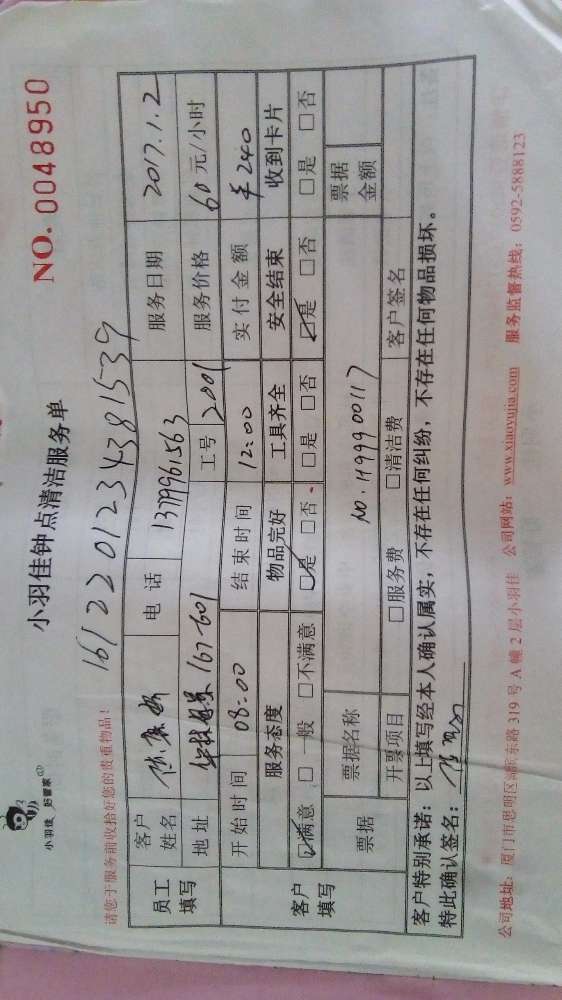 小羽佳 好管家
小羽佳钟点清洁服务单
NO. 0048950
1612201234381539
请您于服务前收拾好您的贵重物品!
员工填写
客户姓名
电话 13799961563
服务日期 2017.1.2
地址 167-601
工号 2001
服务价格 60元/小时
开始时间 08:00 结束时间 12:00 实付金额 ¥240
客户填写
服务态度 物品完好 工具齐全 安全结束 收到卡片
☑满意 □一般 □不满意 ☑是 □否 □是 □否 ☑是 □否 □是 □否
票据 票据名称 NO.1199900117 票据金额
开票项目 □服务费 □清洁费 客户签名
客户特别承诺:以上填写经本人确认属实,不存在任何纠纷,不存在任何物品损坏。
特此确认签名:
公司地址:厦门市思明区湖滨东路319号A幢2层小羽佳 公司网站:www.xiaoyujia.com 服务监督热线:0592-5888123